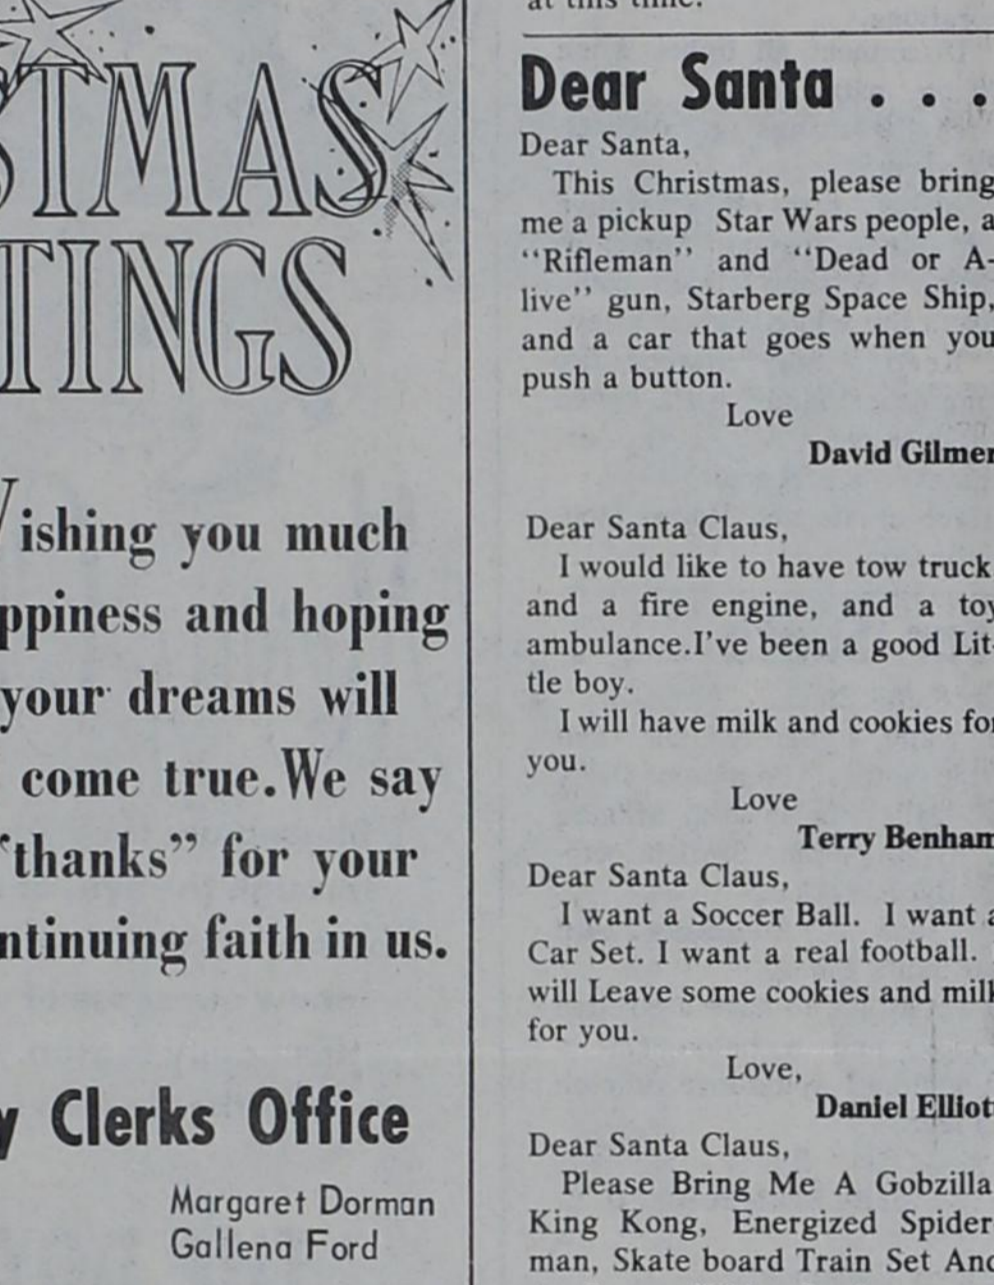 STMAS
TINGS
ishing you much
ppiness and hoping
your dreams will
come true.We say
"thanks" for your
ntinuing faith in us.
y Clerks Office
Margaret Dorman
Gallena Ford
at this time.
Dear Santa . . .
Dear Santa,
This Christmas, please bring
me a pickup Star Wars people, a
"Rifleman" and "Dead or A-
live" gun, Starberg Space Ship,
and a car that goes when you
push a button.
Love
David Gilmer
Dear Santa Claus,
I would like to have tow truck
and a fire engine, and a toy
ambulance.I've been a good Lit-
tle boy.
I will have milk and cookies for
you.
Love
Terry Benham
Dear Santa Claus,
I want a Soccer Ball. I want a
Car Set. I want a real football.
will Leave some cookies and milk
for you.
Love,
Daniel Elliott
Dear Santa Claus,
Please Bring Me A Gobzilla
King Kong, Energized Spider
man, Skate board Train Set And